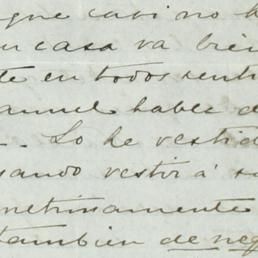 que casi no h
u casa va bien
te en todos senti
anuel habla d
. Lo he vestid
sando vestir á s
netrinamente
tambien de neg